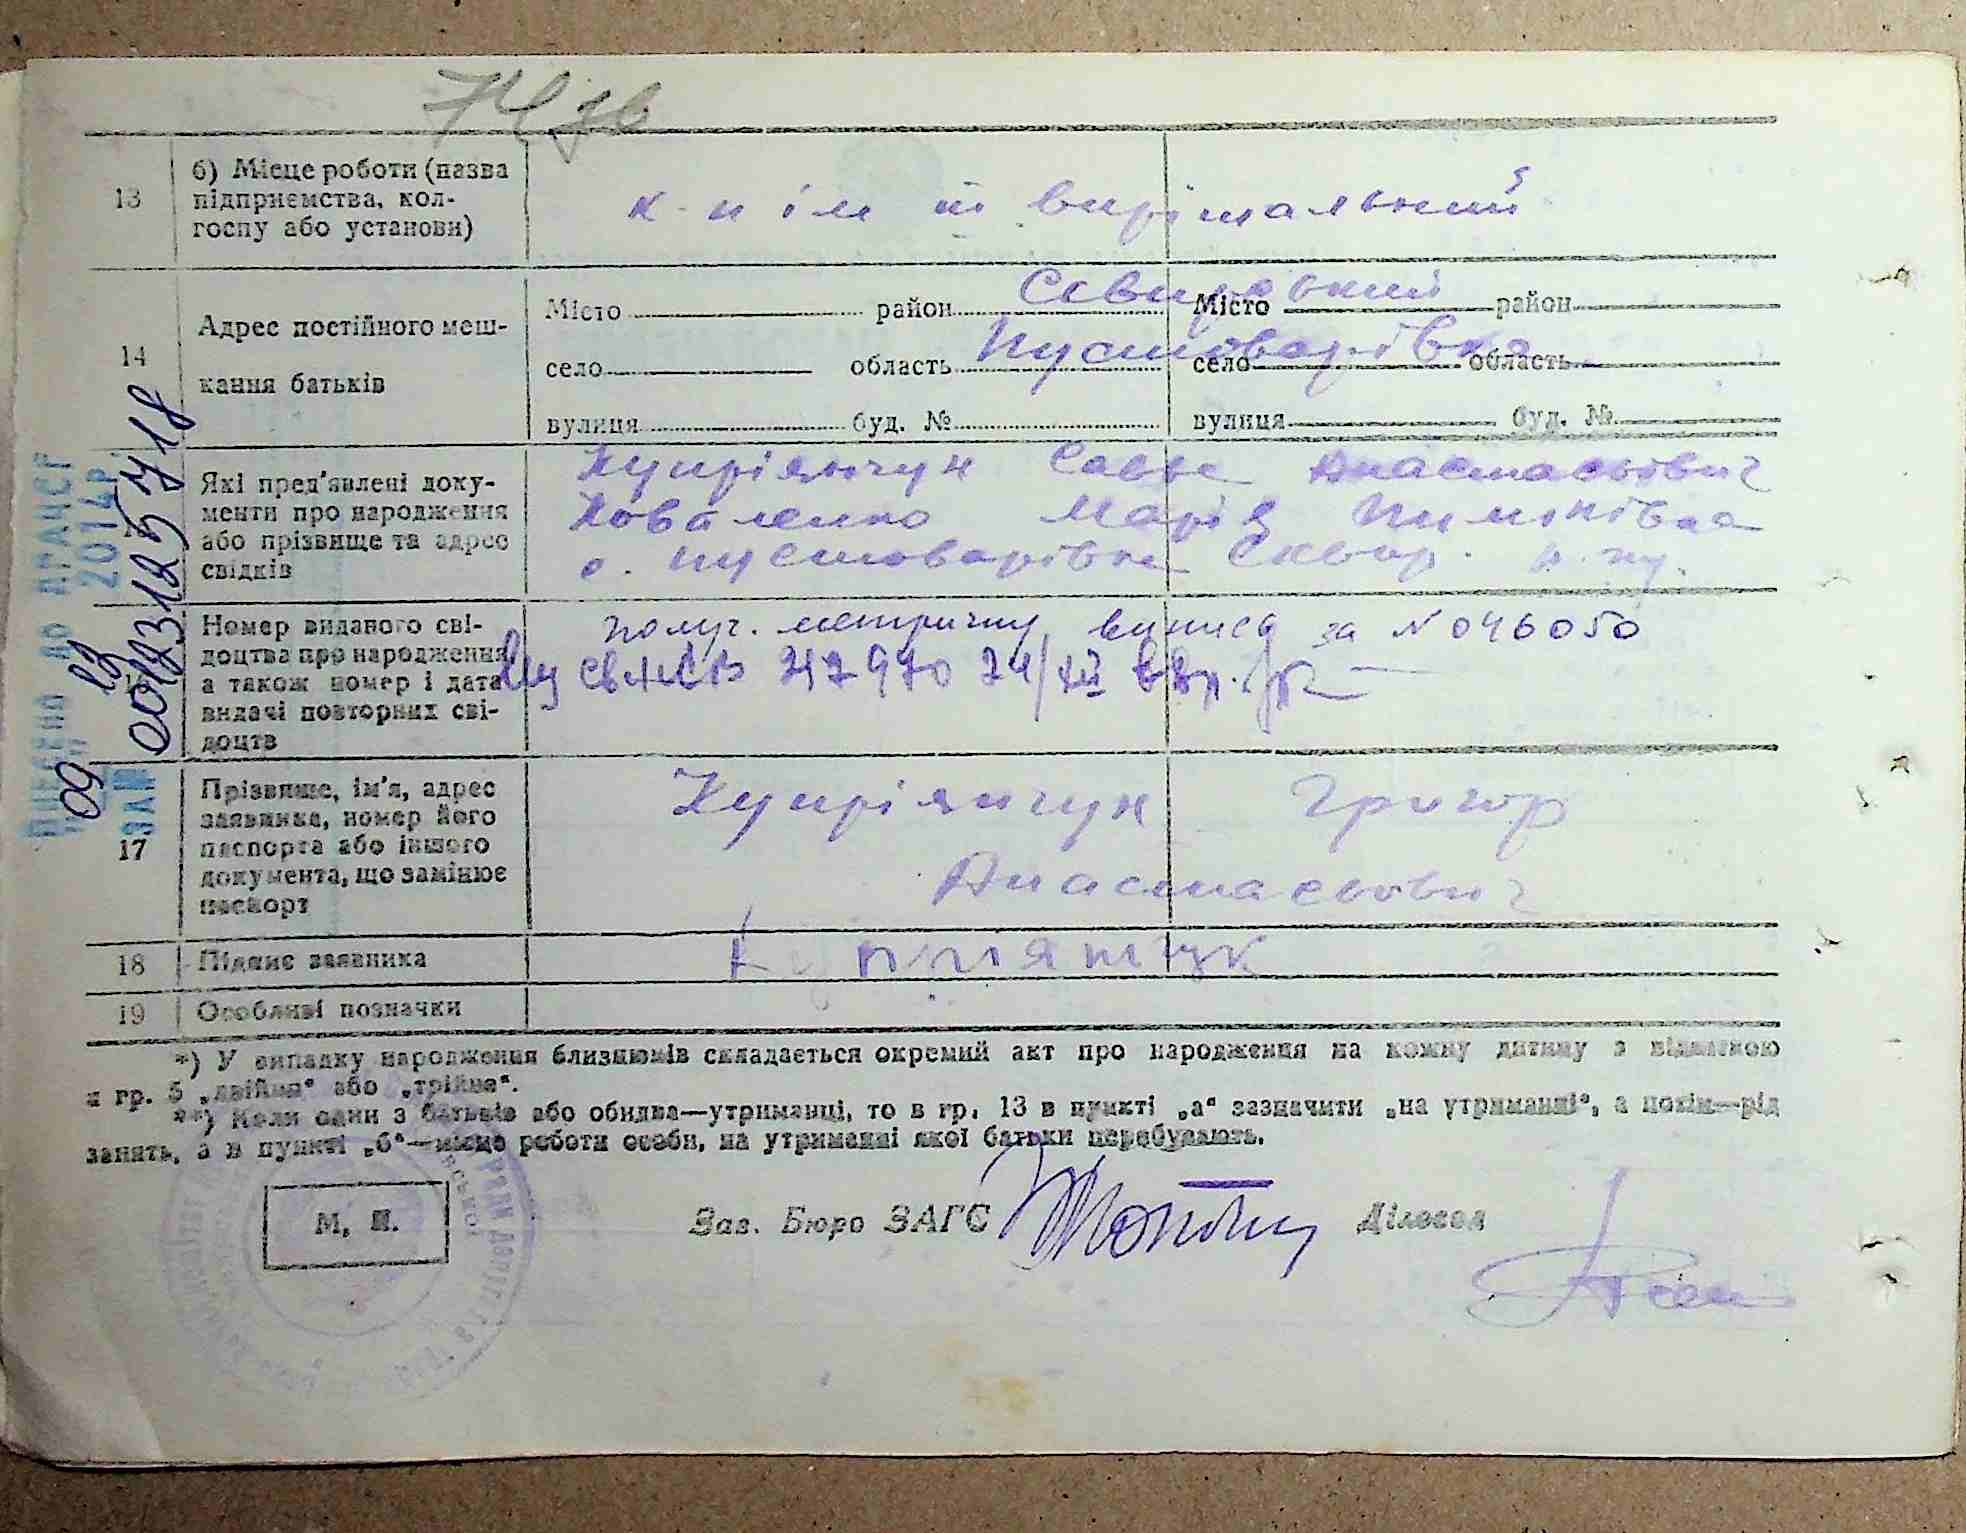 13
б) Місце роботи (назва
підприємства, кол-
госпу або установи)
к-п ім ІІІ вирішальний
14
Адрес постійного меш-
кання батьків
Місто район Сквирський
село область Пустоварівка
вулиця буд. №
Місто район
село область
вулиця буд. №
Які пред'явлені доку-
менти про народження
або прізвище та адрес
свідків
Купріянчук Савка Анастасьович
Коваленко Марія Пимонівна
с. Пустоварівка Сквир. р-ну.
16
Номер виданого сві-
доцтва про народження
а також номер і дата
видачі повторних сві-
доцтв
получ. метричну випись за № 046050
317970
17
Прізвище, ім'я, адрес
заявника, номер його
паспорта або іншого
документа, що замінює
паспорт
Купріянчук Григор
Анастасьович
18
Підпис заявника
Купріянчук
19
Особливі позначки
*) У випадку народження близнюків складається окремий акт про народження на кожну дитину з відміткою
в гр. 5 „двійня“ або „трійня“.
**) Коли один з батьків або обидва—утриманці, то в гр. 13 в пункті „а“ зазначити „на утриманні“, а потім—рід
занять, а в пункті „б“—місце роботи особи, на утриманні якої батьки перебувають.
М. П.
Зав. Бюро ЗАГС
Діловод
ДО ДРАЦСГ
2014р.
09 12
ЗА №
00123125718